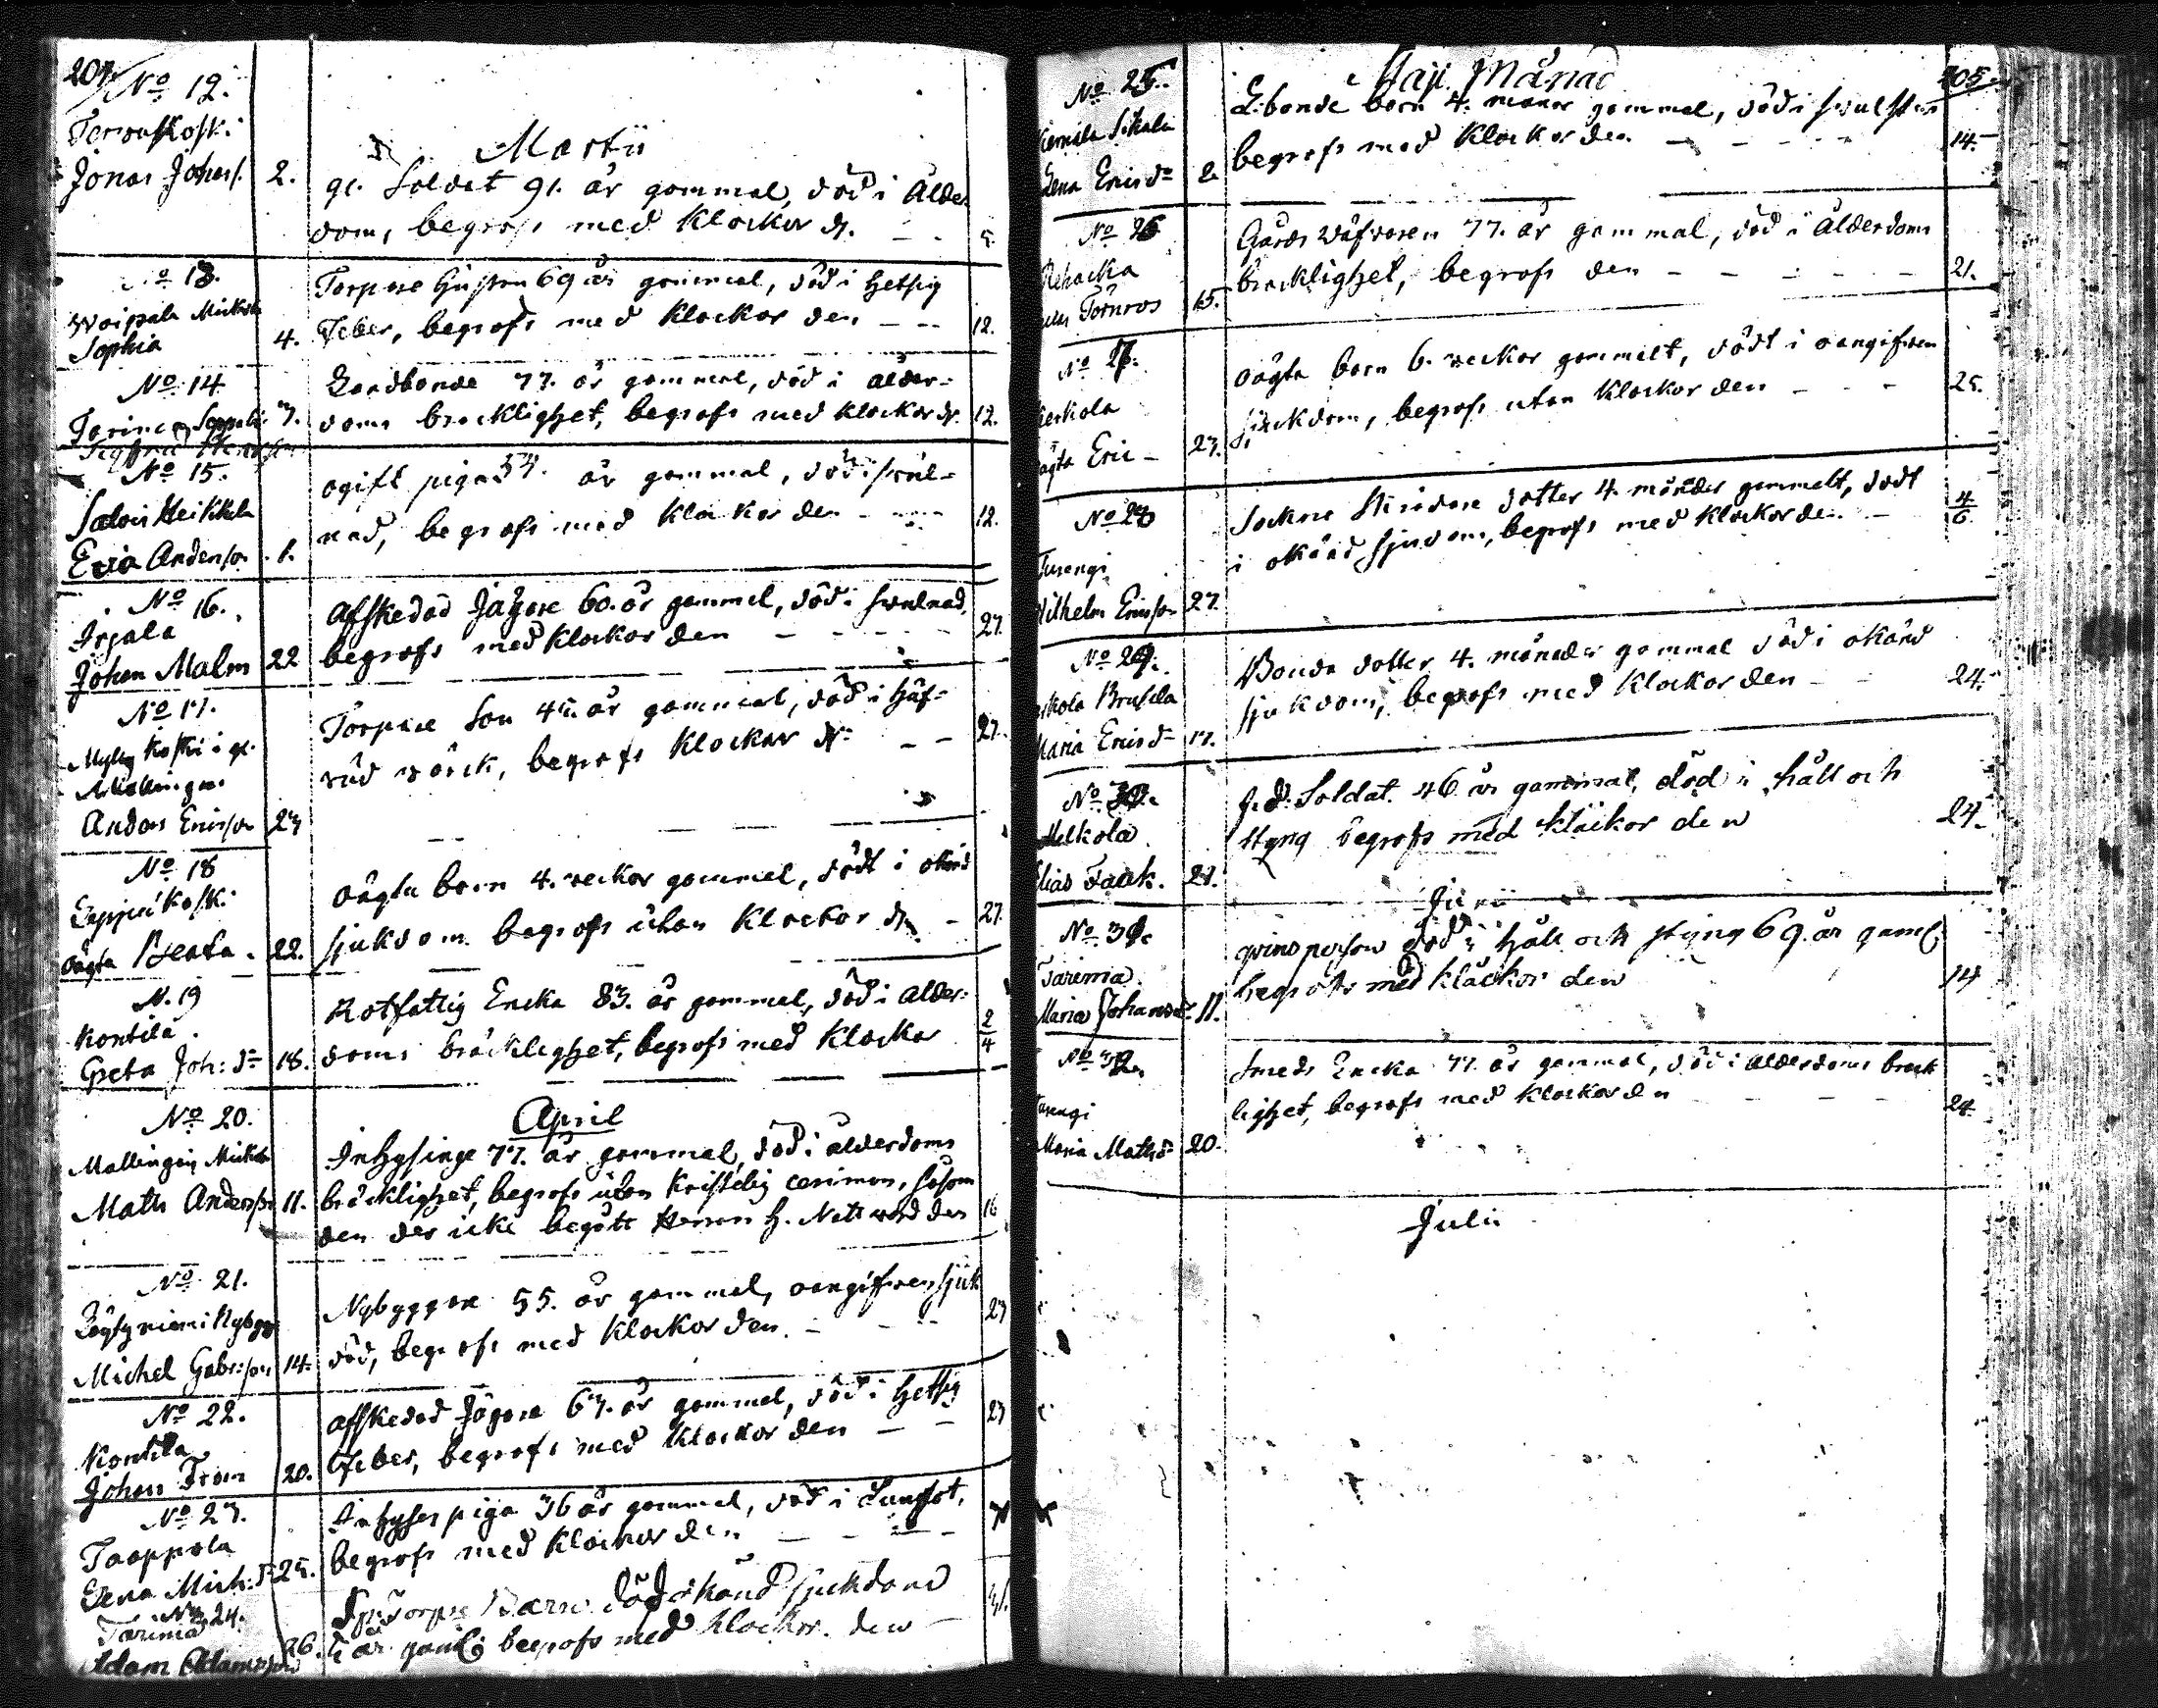 204.
No 12.
Martii
Jonas Johans. 2. gl. Soldat 91. år gammal, död i ålder
dom, begrofs med Klockor d. 5.
No 13.
Sophia 4. Torpare Hustru 69 år gammal, död i hetsig
Feber, begrofs med Klockor den 12.
No 14.
7. Landbonde 77. år gammal, död i ålder-
doms bräcklighet, begrofs med klockor d. 12.
No 15.
Heikkila
Eva Anders 1. ogift piga 57. år gammal, död i swul-
nad, begrofs med Klockor den 12.
No 16.
Irjala
Johan Malm 22 Afskedad Jägare 60. år gammal, död i swulnad,
begrofs med Klockor den 27.
No 17.
Koski i gl.
Mallingen
Anders Ericsson 23 Torpare Son 45. år gammal, död i Huf-
vud wärck, begrofs Klockor d. 27.
No 18
oägta Beata. 22. oägta barn 4. veckor gammal, dödt i okänd
sjukdom begrofs utan Klockor d. 27.
N. 19
Kontila.
Greta Joh: dr 18. Rotfattig Encka 83. år gammal, död i ålder-
doms bräcklighet, begrofs med Klockor 2/4
No 20.
April
Math Anderss 11. Inhysinge 77. år gammal, död i ålderdoms
bräcklighet, begrofs utan Kristelig cerimon, såsom
den der icke begått Herrans H. Nattward den 16
No 21.
Michel Gabr:son 14. Nybyggare 55. år gammal, oangifven sjuk
död, begrofs med Klockor den 27
No 22.
Kontila
Johan From 20. Afskedad Jägare 67. år gammal, död i hetsig
Feber, begrofs med Klockor den 27
No 23.
Taappola
Lena Mich: dr 25. Inhyses piga 36 år gammal, död i Lungsot,
begrofs med Klockor den
No 24.
Tarinma
Adam Adamsson 26. Barn död okänd sjukdom
år gaml: begrofs med Klockor den
205.
Maji Månad
No 25.
Lena Ericsdr 2. L:bonde barn 4. månar gammal, död i swulsten
begrofs med Klockor den 14.
No 26
Rehacka
Törnros 15. Gårds 77. år gammal, död i ålderdoms
bräcklighet, begrofs den 21.
No 27.
oägta Eric 23. oägta barn 6. veckor gammalt, dödt i oangifven
sjuckdom, begrofs utan Klockor den 25.
No 28
Turengi
Wilhelm Ericsson 27. Sockne dotter 4. månader gammalt, dödt
i okänd sjukdom, begrofs med Klockor den 4/6.
No 29.
Maria Ericsdr 17. Bonde dotter 4. månader gammal död i okänd
sjukdom, begrofs med Klockor den 24.
No 30.
Melkola
Elias Falck. 21. Soldat. 46 år gammal, död i håll och
styng begrofs med klåckor den 24.
Junii
No 31.
Tarinma
Maria Johansdr 11. qvinsperson död i håll och styng 69. år gaml.
begrofs med klåckor den 14
No 32.
Turengi
Maria Mathsdr 20. Smeds Encka 77. år gammal, död i ålderdoms bräck
lighet, begrofs med Klockor den 24.
Julii